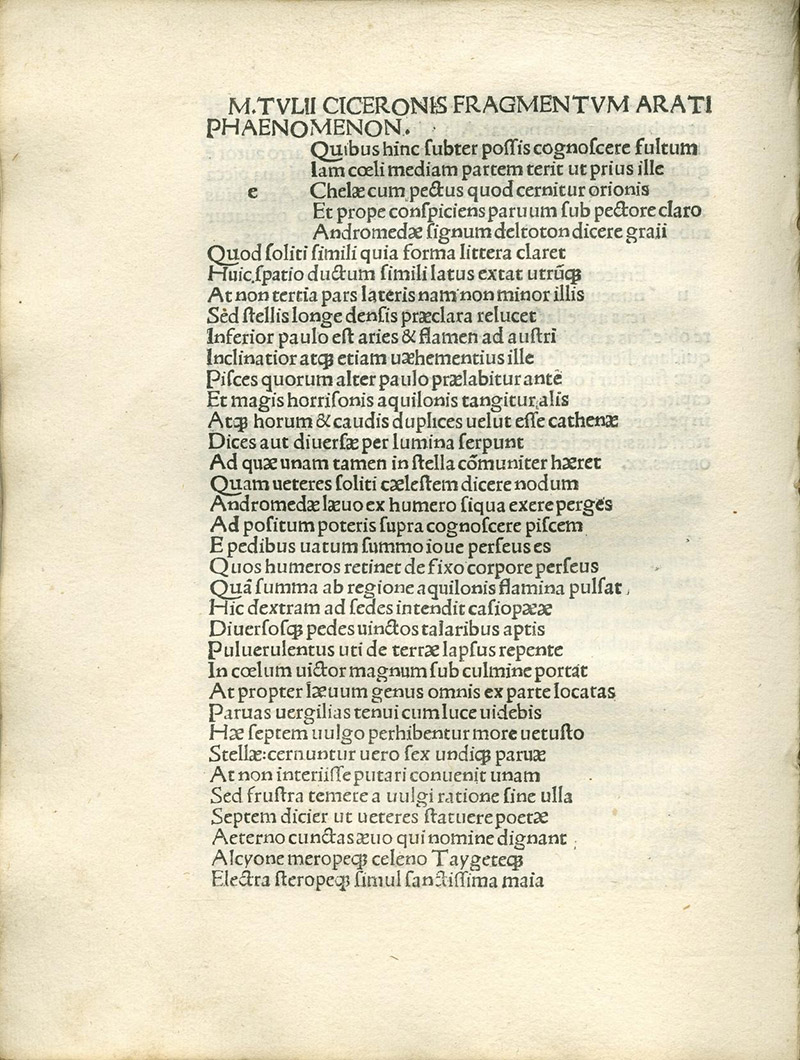 M.TVLII CICERONIS FRAGMENTVM ARATI
PHAENOMENON.
Quibus hinc ſubter poſſis cognoſcere fultum
Iam cœli mediam partem terit ut prius ille
e Chelæ cum pectus quod cernitur orionis
Et prope conſpiciens paruum ſub pectore claro
Andromedæ ſignum deltoton dicere graii
Quod ſoliti ſimili quia forma littera claret
Huic ſpatio ductum ſimili latus extat utrūqꝫ
At non tertia pars lateris nam non minor illis
Sed ſtellis longe denſis præclara relucet
Inferior paulo eſt aries & flamen ad auſtri
Inclinatior atqꝫ etiam uæhementius ille
Piſces quorum alter paulo prælabitur ante
Et magis horriſonis aquilonis tangitur alis
Atqꝫ horum & caudis duplices uelut eſſe cathenæ
Dices aut diuerſæ per lumina ſerpunt
Ad quæ unam tamen in ſtella cōmuniter hæret
Quam ueteres ſoliti cæleſtem dicere nodum
Andromedæ læuo ex humero ſiqua exere perges
Ad poſitum poteris ſupra cognoſcere piſcem
E pedibus uatum ſummo ioue perſeus es
Quos humeros retinet defixo corpore perſeus
Quā ſumma ab regione aquilonis flamina pulſat
Hic dextram ad ſedes intendit caſiopææ
Diuerſoſqꝫ pedes uinctos talaribus aptis
Puluerulentus uti de terræ lapſus repente
In cœlum uictor magnum ſub culmine portat
At propter læuum genus omnis ex parte locatas
Paruas uergilias tenui cum luce uidebis
Hæ ſeptem uulgo perhibentur more uetuſto
Stellæ:cernuntur uero ſex undiqꝫ paruæ
At non interiiſſe putari conuenit unam
Sed fruſtra temere a uulgi ratione ſine ulla
Septem dicier ut ueteres ſtatuere poetæ
Aeterno cunctas æuo qui nomine dignant
Alcyone meropeqꝫ celeno Taygeteqꝫ
Electra ſteropeqꝫ ſimul ſanctiſſima maia